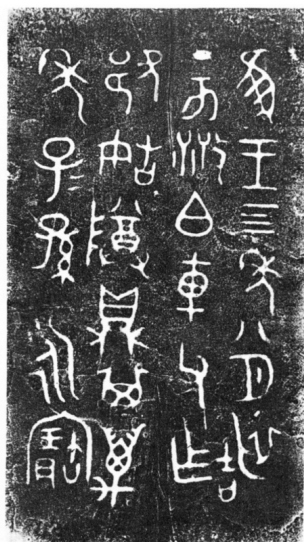 隹王四年八月初吉
丁亥散白車父乍
姞尊鼎其萬
年子子孫永寶